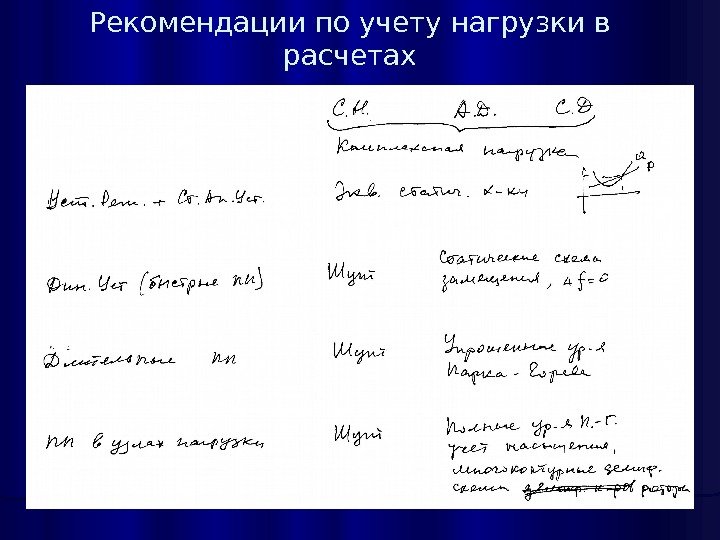 Рекомендации по учету нагрузки в
расчетах
С.Н. А.Д. С.Д
Комплексная нагрузка
Q
P
Уст. Реж. + Ст. Ап. Уст. Экв. статич. х-ки
Дин. Уст (быстрые ПП) Шунт Статические схема
замещения, Δf=0
Длительные ПП Шунт Упрощенные ур-я
Парка-Горева
ПП в узлах нагрузки Шунт Полные ур-я П.-Г.
учет насыщения,
многоконтурные демпф.
схемы ротора